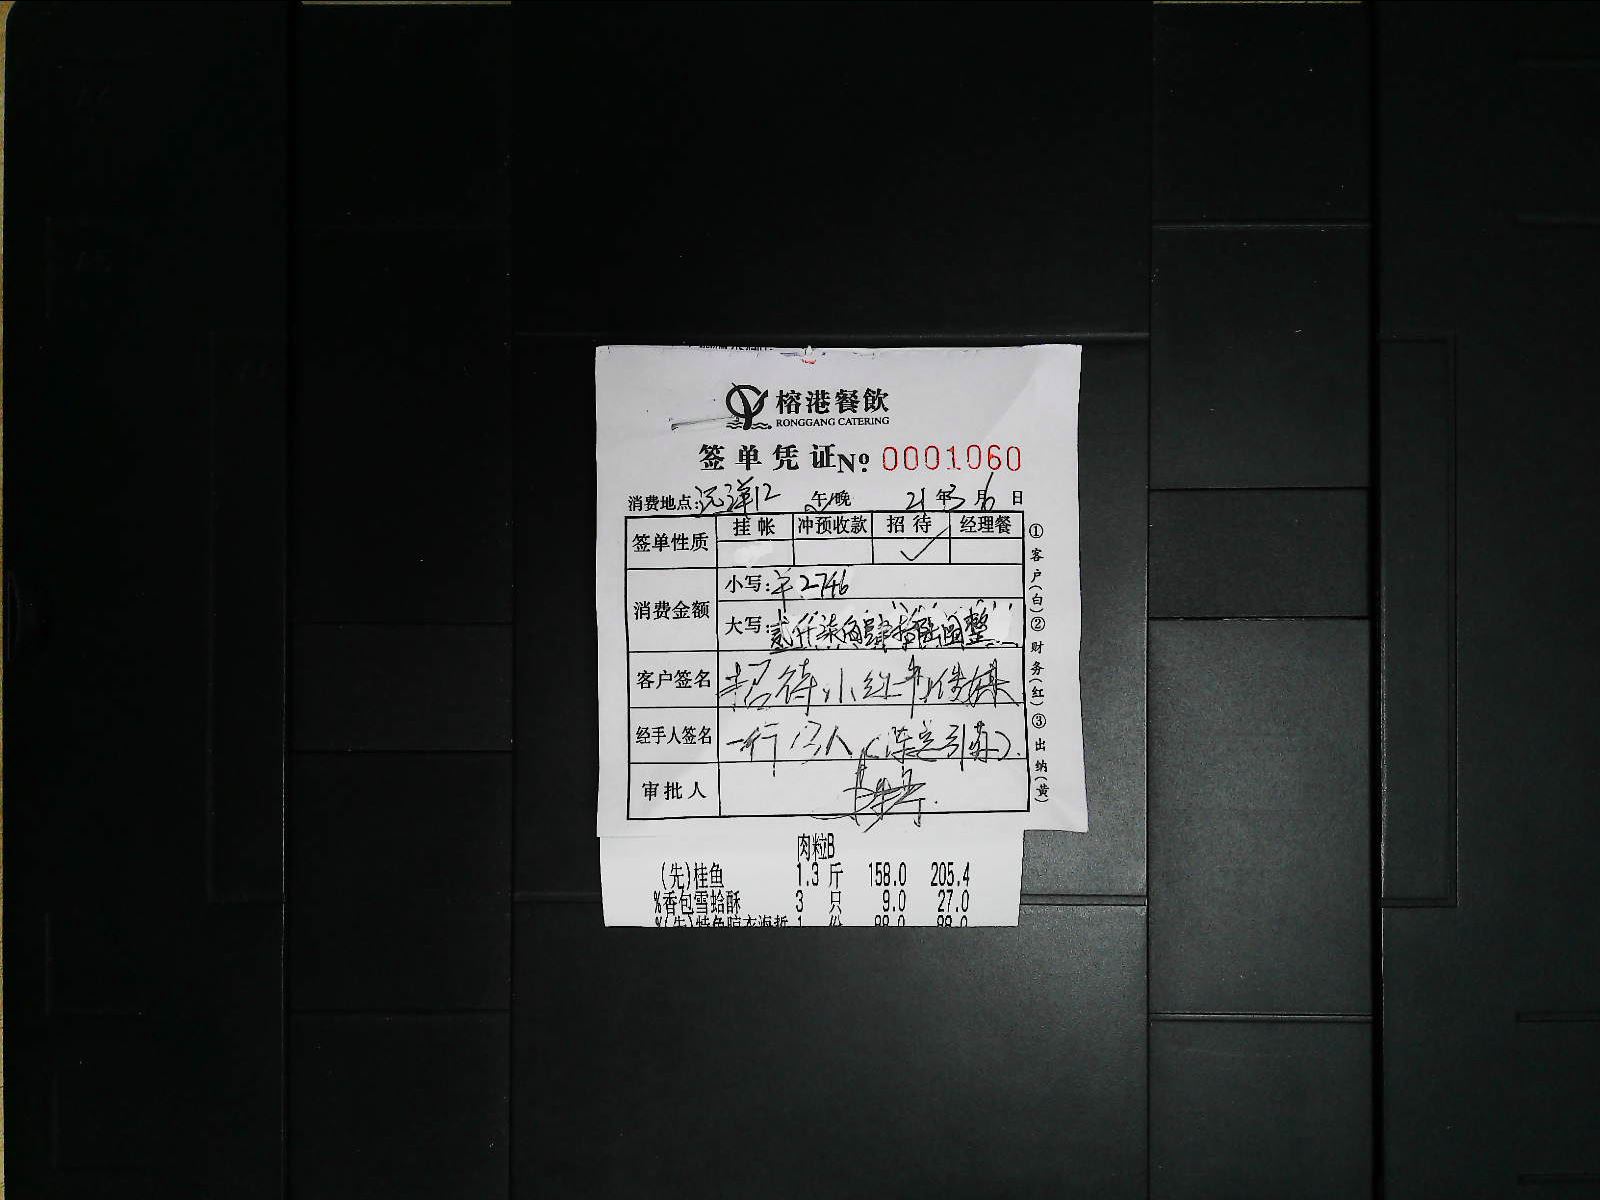 榕港餐飲
RONGGANG CATERING
签单凭证 No. 0001060
消费地点: 远洋12 午/晚 21年3月6日
签单性质 挂帐 冲预收款 招待 经理餐
✓
消费金额 小写: ¥2746
大写: 贰仟柒佰肆拾陆圆整
客户签名 招待小红书
经手人签名 一行
审批人
①客户(白)②财务(红)③出纳(黄)
肉粒B
(先)桂鱼 1.3 斤 158.0 205.4
%香包雪蛤酥 3 只 9.0 27.0